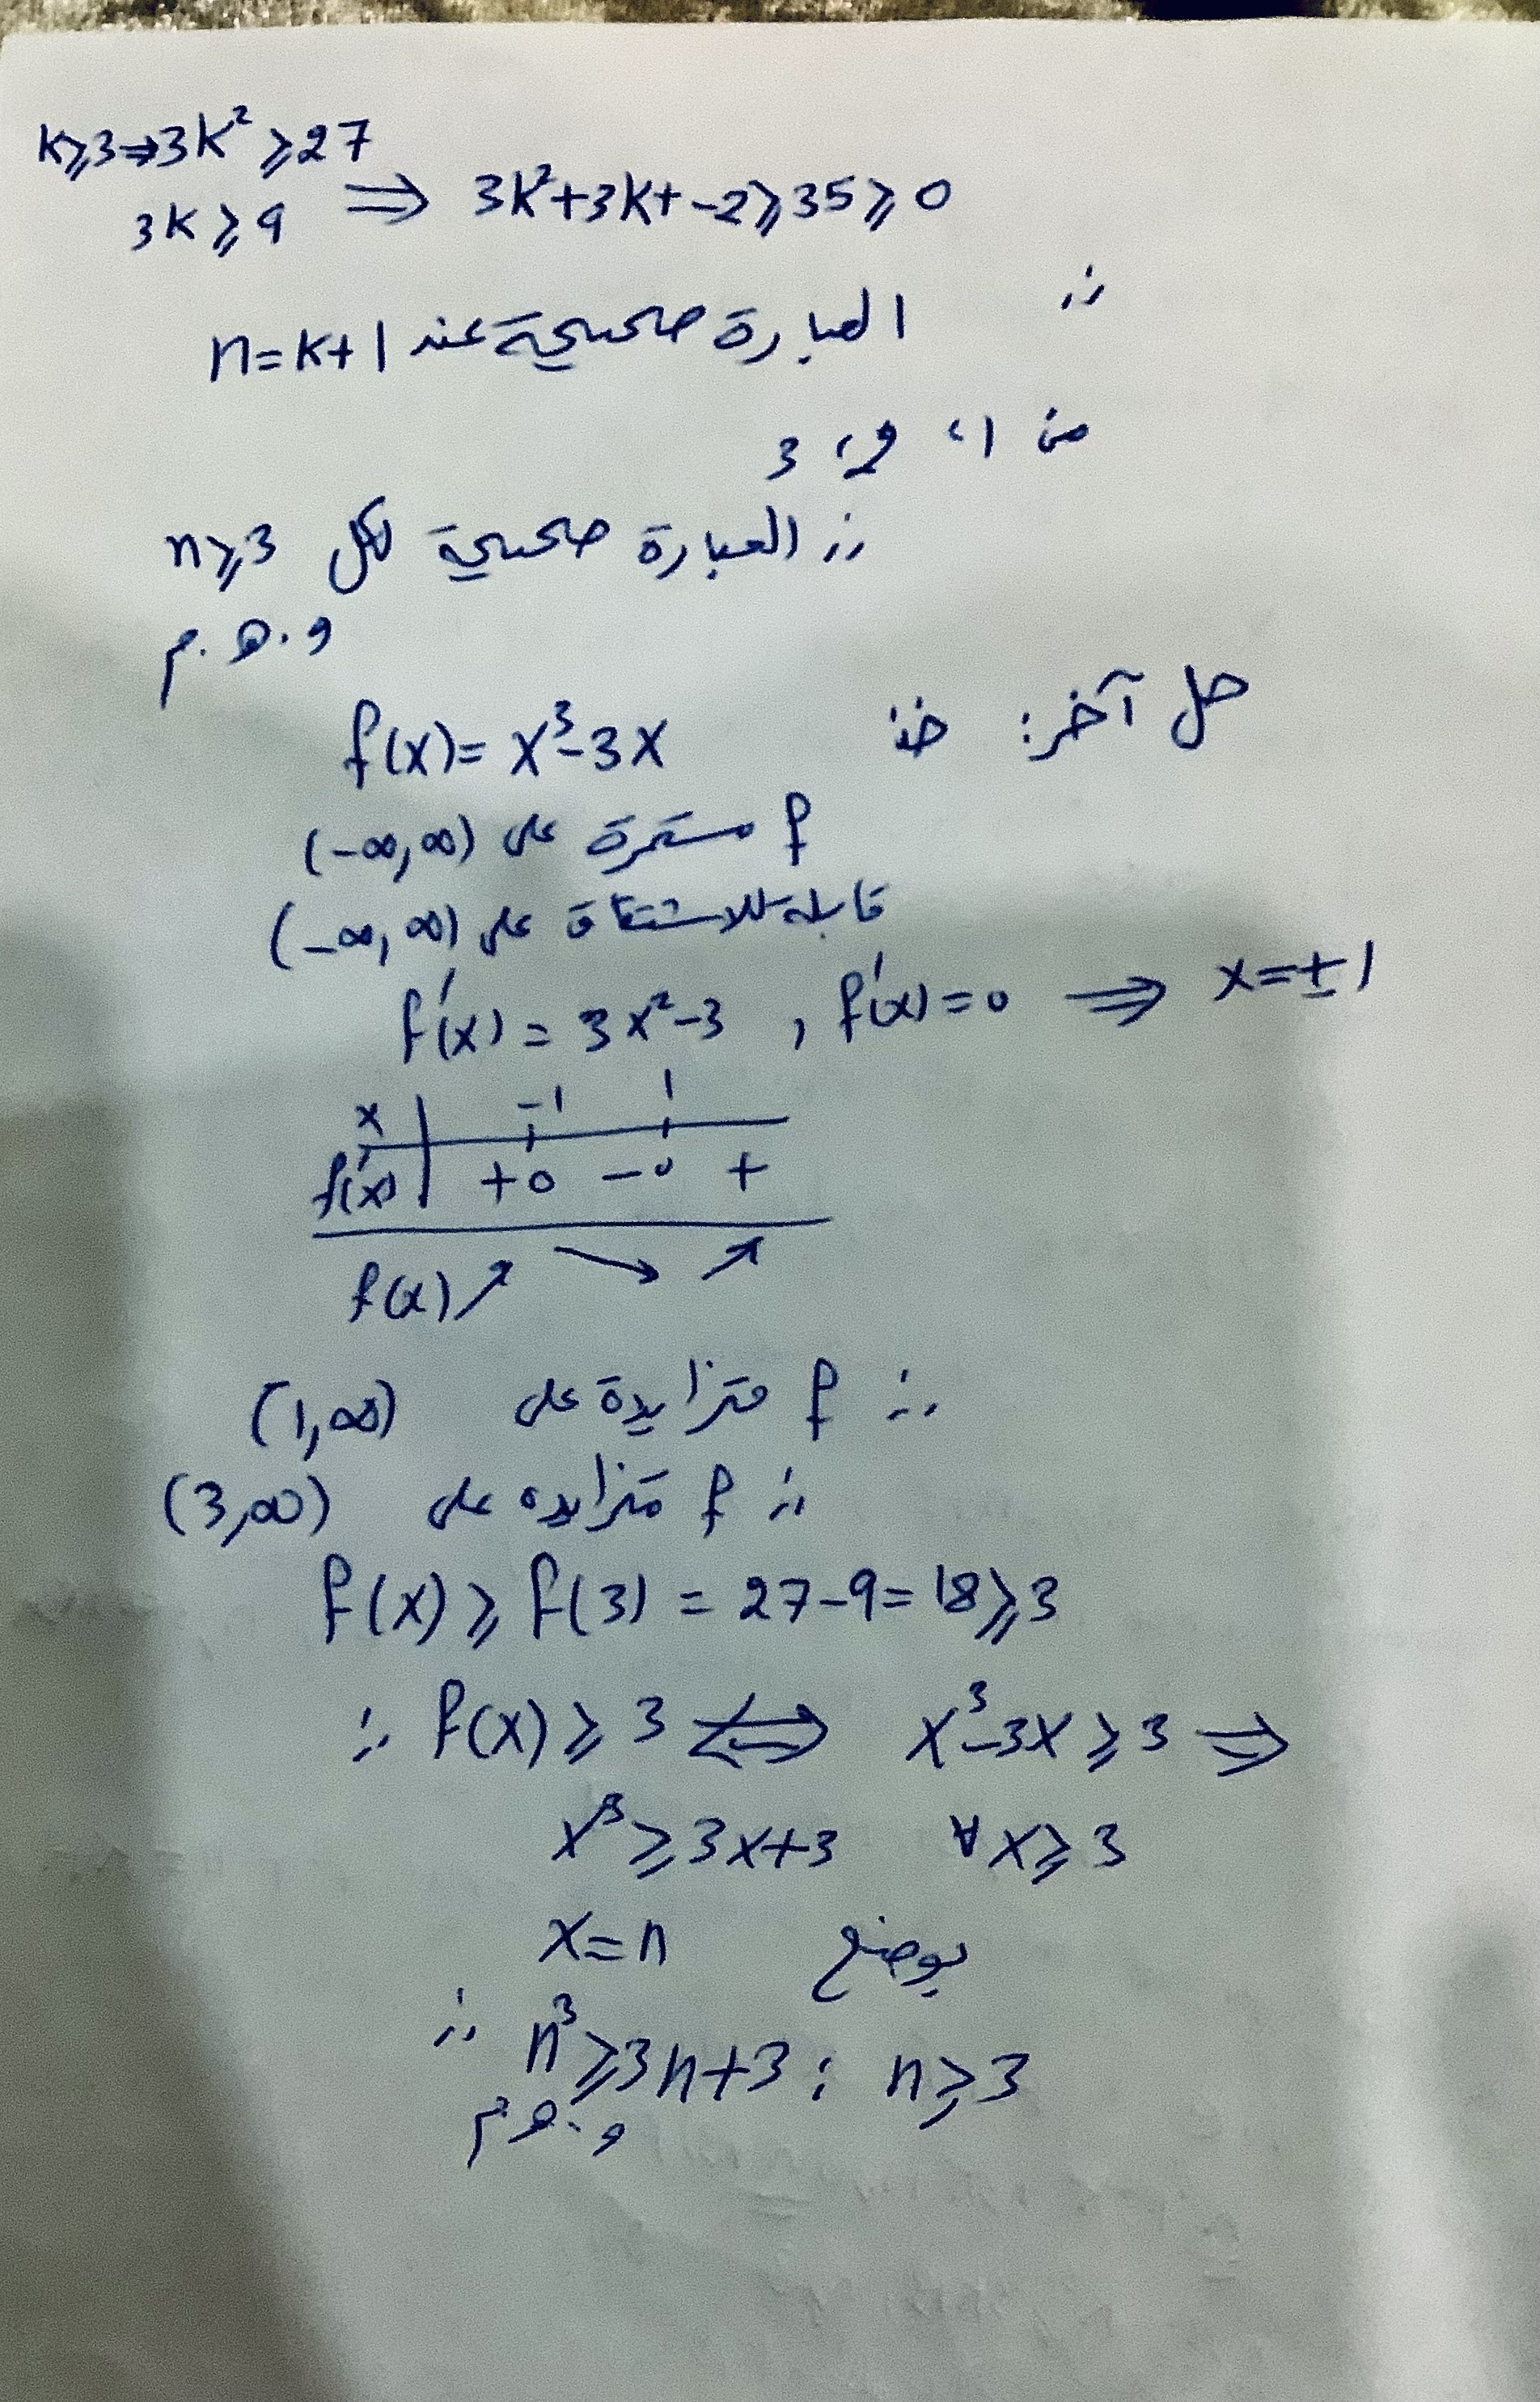 k⩾3⇒3k²⩾27
3k⩾9 ⟹ 3k²+3k+-2⩾35⩾0
∴ العبارة صحيحة عند n=k+1
من 1، 2، 3
∴ العبارة صحيحة لكل n⩾3
و.هـ.م
حل آخر: خذ f(x)=x³-3x
f مستمرة على (-∞,∞)
قابلة للاشتقاق على (-∞,∞)
f'(x)=3x²-3 , f'(x)=0 ⟹ x=±1
x | -1 1
f'(x) | +0 -0 +
f(x) ↗ ↘ ↗
∴ f متزايدة على (1,∞)
∴ f متزايده على (3,∞)
f(x)⩾f(3)=27-9=18⩾3
∴ f(x)⩾3 ⟺ x³-3x⩾3 ⟹
x³⩾3x+3 ∀x⩾3
بوضع x=n
∴ n³⩾3n+3 : n⩾3
و.هـ.م